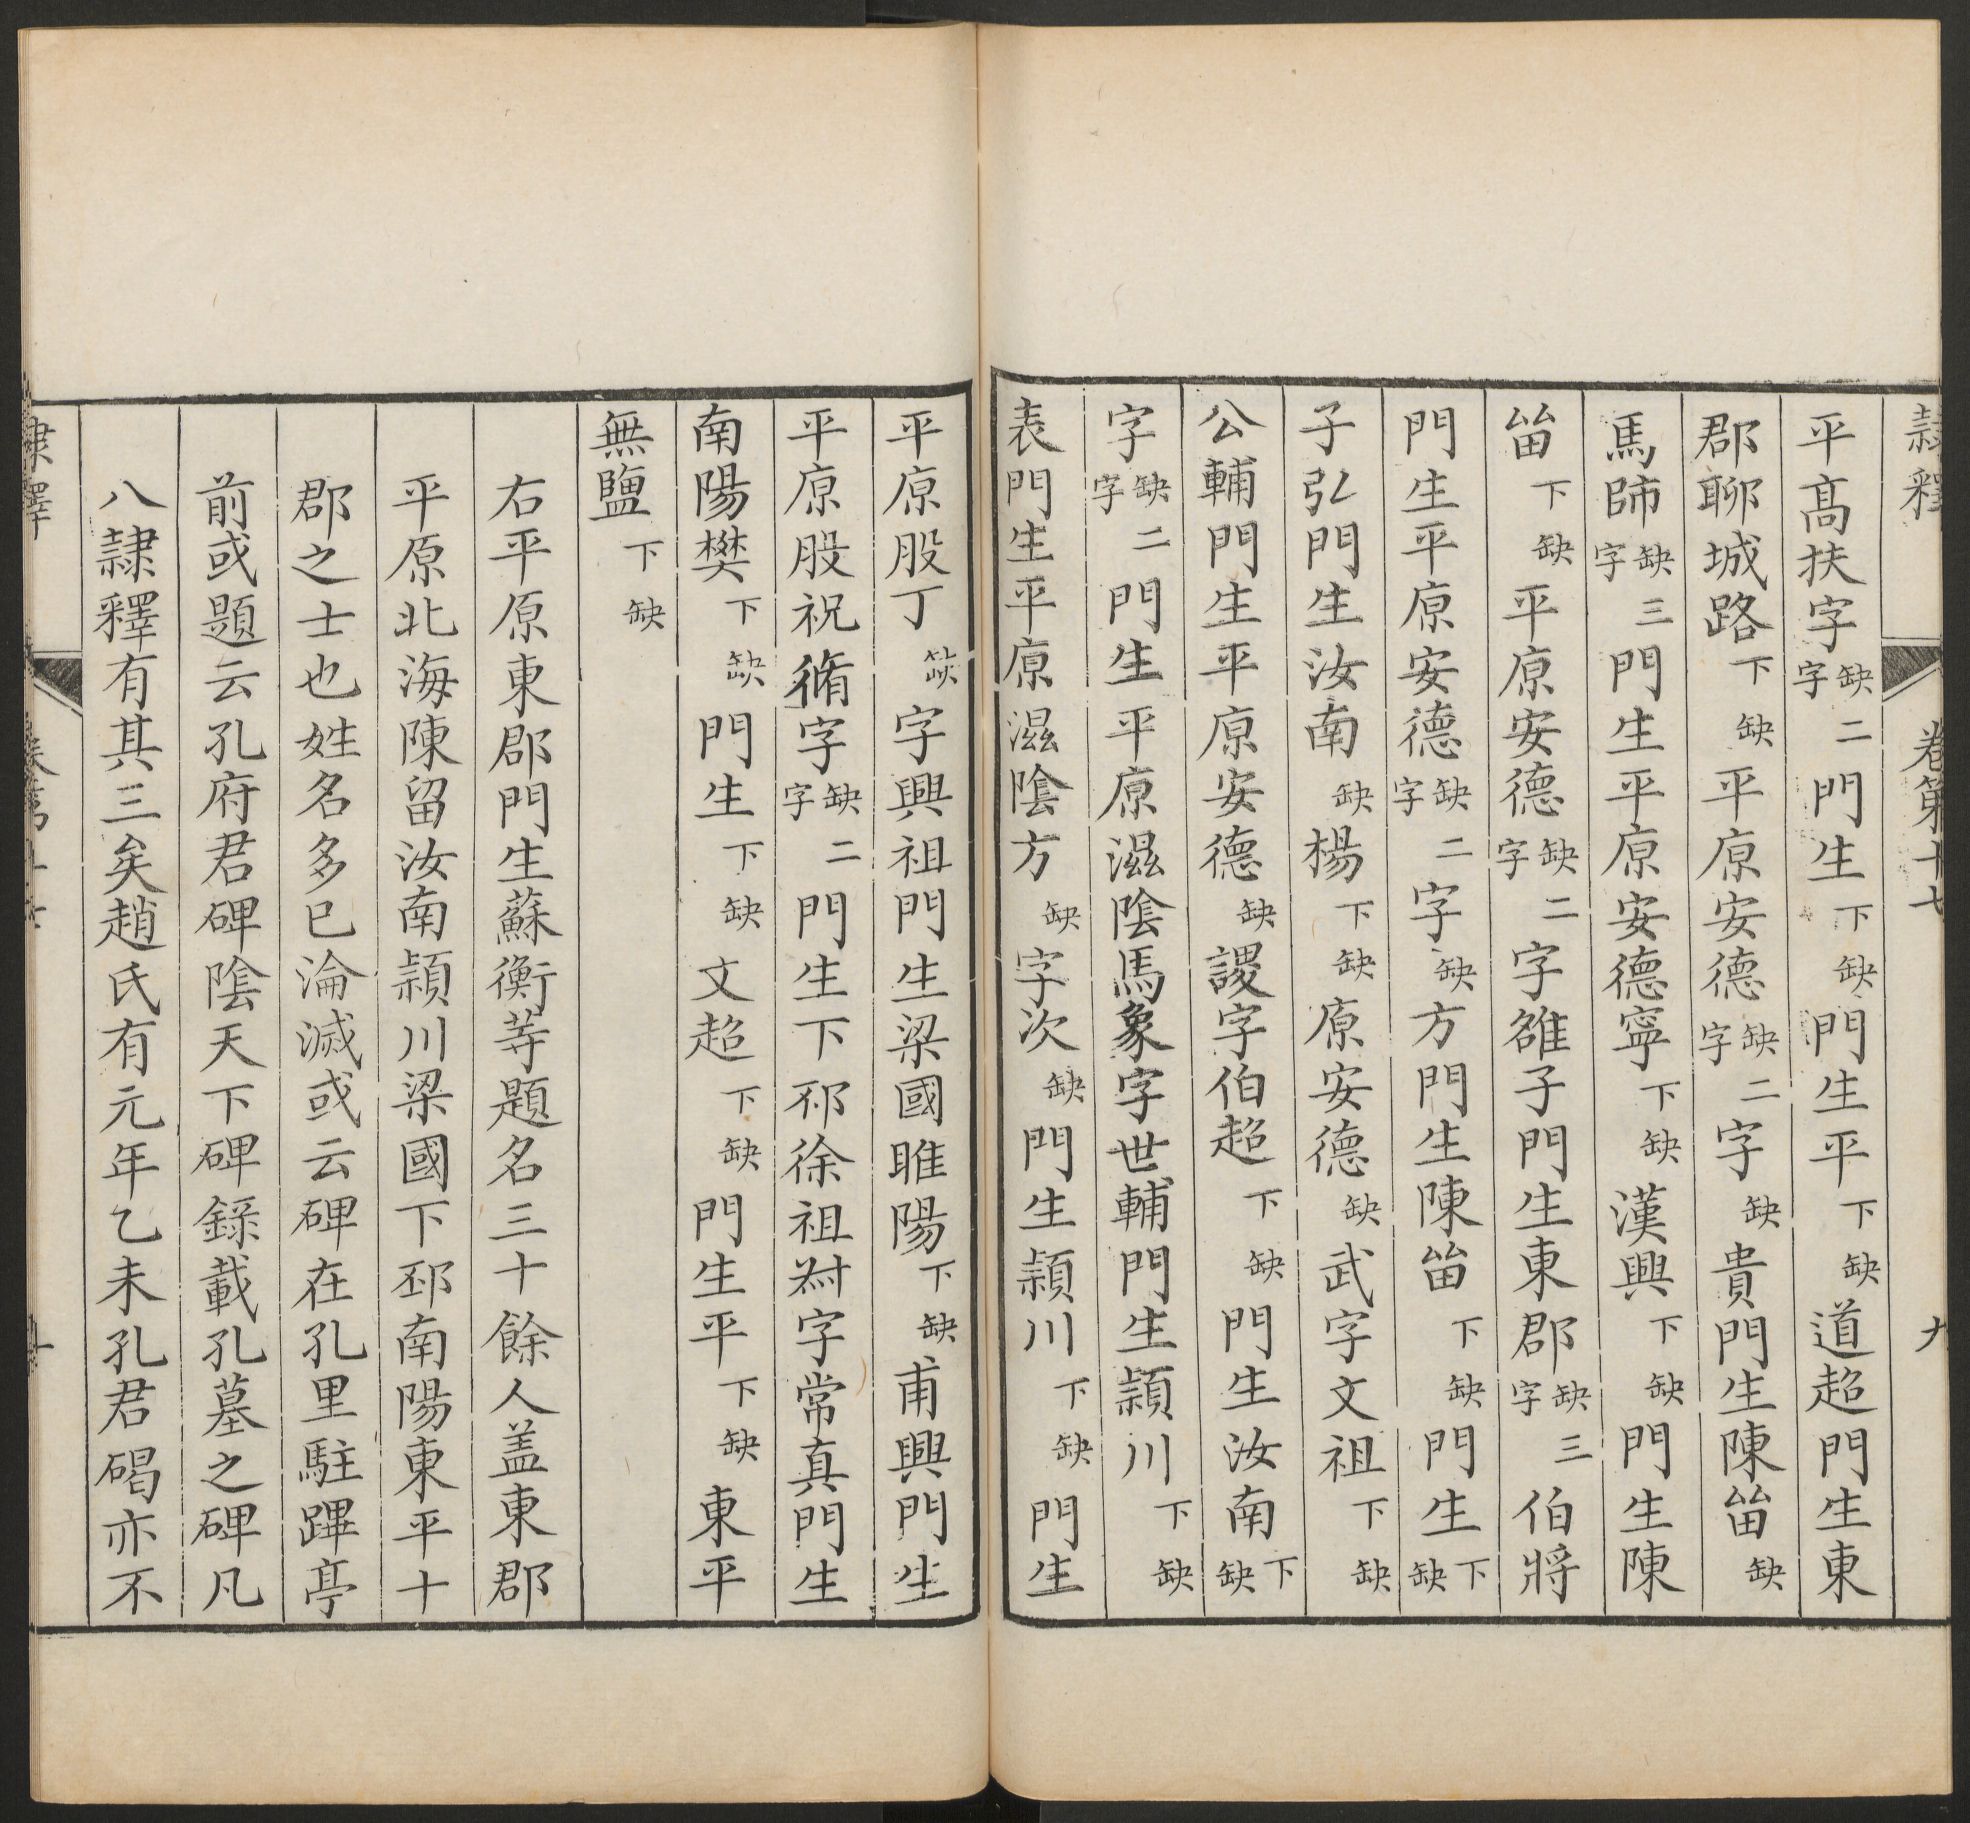 隸釋 卷第十七 九
平髙扶字缺二字門生下缺門生平下缺道超門生東
郡聊城路下缺平原安德缺二字字缺貴門生陳畄缺
馬師缺三字門生平原安德寧下缺漢興下缺門生陳
畄下缺平原安德缺二字字雒子門生東郡缺三字伯將
門生平原安德缺二字字缺方門生陳畄下缺門生下缺
子弘門生汝南缺楊下缺原安德缺武字文祖下缺
公輔門生平原安德缺謖字伯超下缺門生汝南下缺
字缺二字門生平原濕陰馬象字世輔門生潁川下缺
表門生平原濕陰方缺字次缺門生潁川下缺門生
平原股丁缺字興祖門生梁國睢陽下缺甫興門生
平原股祝脩字缺二字門生下邳徐祖尉字常真門生
南陽樊下缺門生下缺文超下缺門生平下缺東平
無鹽下缺
右平原東郡門生蘇衡等題名三十餘人盖東郡
平原北海陳留汝南潁川梁國下邳南陽東平十
郡之士也姓名多已淪滅或云碑在孔里駐蹕亭
前或題云孔府君碑陰天下碑錄載孔墓之碑凡
八隷釋有其三矣趙氏有元年乙未孔君碣亦不